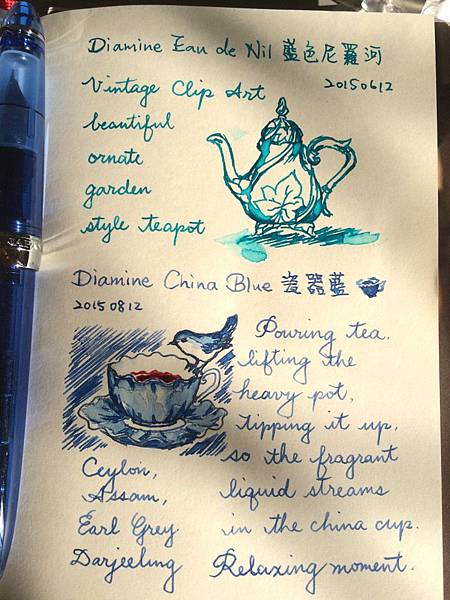 Diamine Eau de Nil 藍色尼羅河
20150612
Vintage Clip Art
beautiful
ornate
garden
style teapot
Diamine China Blue 瓷器藍
20150812
Pouring tea,
lifting the
heavy pot,
tipping it up,
so the fragrant
liquid streams
in the china cup.
Relaxing moment.
Ceylon,
Assam,
Earl Grey
Darjeeling